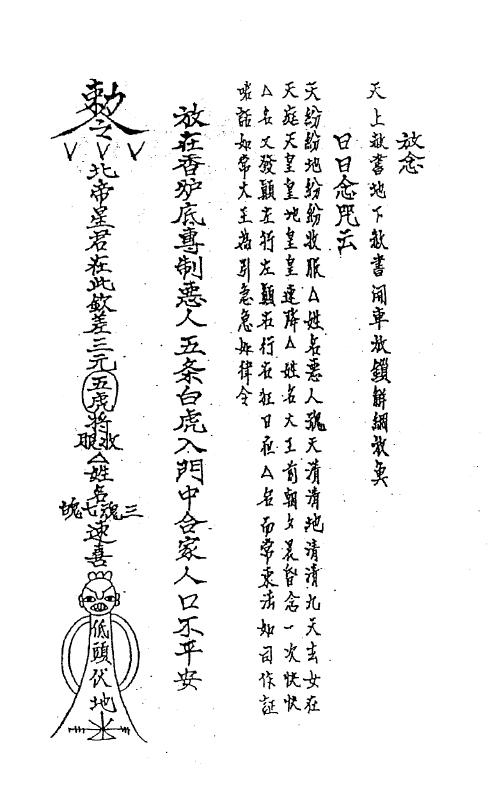 放念
天上赦書地下赦書開車放鎖解綱放奐
日日念咒云
天紛紛地紛紛收服△姓名惡人魂天清清地清清九天玄女在
天庭天皇皇地皇皇速降△姓名大王前朝夕晨昏念一次快快
△名又發顛左行左顛右行右狂日夜△名而常柬法如司作証
喏話如常大王為引急急如律令
放在香炉底專制惡人五条白虎入門中合家人口不平安
敕令
北帝星君在此欽差三元五虎將收服△姓名三魂七魄速喜
低頭伏地